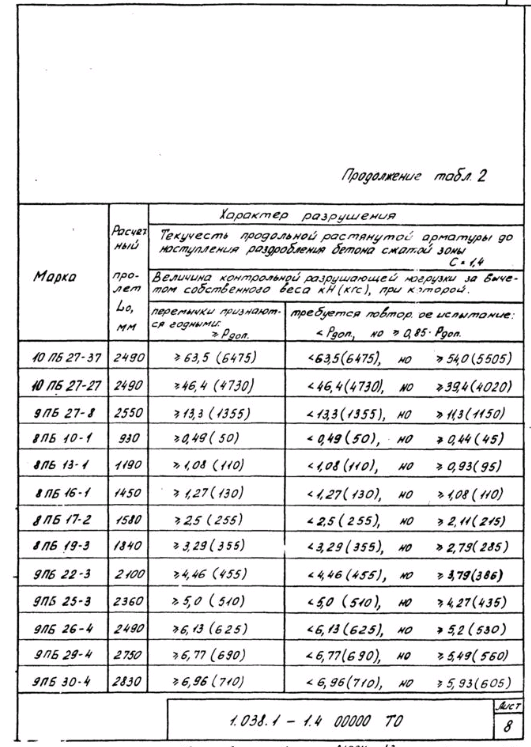 Продолжение табл. 2
Марка
Расчетный пролет Lо, мм
Характер разрушения
Текучесть продольной растянутой арматуры до
наступления раздробления бетона сжатой зоны
С = 1,4
Величина контрольной разрушающей нагрузки за выче-
том собственного веса кН (кгс), при которой:
перемычки признают-
ся годными:
≥ Рдоп.
требуется повторное испытание:
< Рдоп., но ≥ 0,85·Рдоп.
10 ПБ 27-37 2490 ≥ 63,5 (6475) < 63,5 (6475), но ≥ 54,0 (5505)
10 ПБ 27-27 2490 ≥ 46,4 (4730) < 46,4 (4730), но ≥ 39,4 (4020)
9ПБ 27-8 2550 ≥ 13,3 (1355) < 13,3 (1355), но ≥ 11,3 (1150)
8ПБ 10-1 930 ≥ 0,49 (50) < 0,49 (50), но ≥ 0,44 (45)
8ПБ 13-1 1190 ≥ 1,08 (110) < 1,08 (110), но ≥ 0,93 (95)
8ПБ 16-1 1450 ≥ 1,27 (130) < 1,27 (130), но ≥ 1,08 (110)
8ПБ 17-2 1580 ≥ 2,5 (255) < 2,5 (255), но ≥ 2,11 (215)
8ПБ 19-3 1840 ≥ 3,29 (355) < 3,29 (355), но ≥ 2,79 (285)
9ПБ 22-3 2100 ≥ 4,46 (455) < 4,46 (455), но ≥ 3,79 (386)
9ПБ 25-3 2360 ≥ 5,0 (510) < 5,0 (510), но ≥ 4,27 (435)
9ПБ 26-4 2490 ≥ 6,13 (625) < 6,13 (625), но ≥ 5,2 (530)
9ПБ 29-4 2750 ≥ 6,77 (690) < 6,77 (690), но ≥ 5,49 (560)
9ПБ 30-4 2830 ≥ 6,96 (710) < 6,96 (710), но ≥ 5,93 (605)
1.038.1 - 1.4 00000 ТО
Лист
8